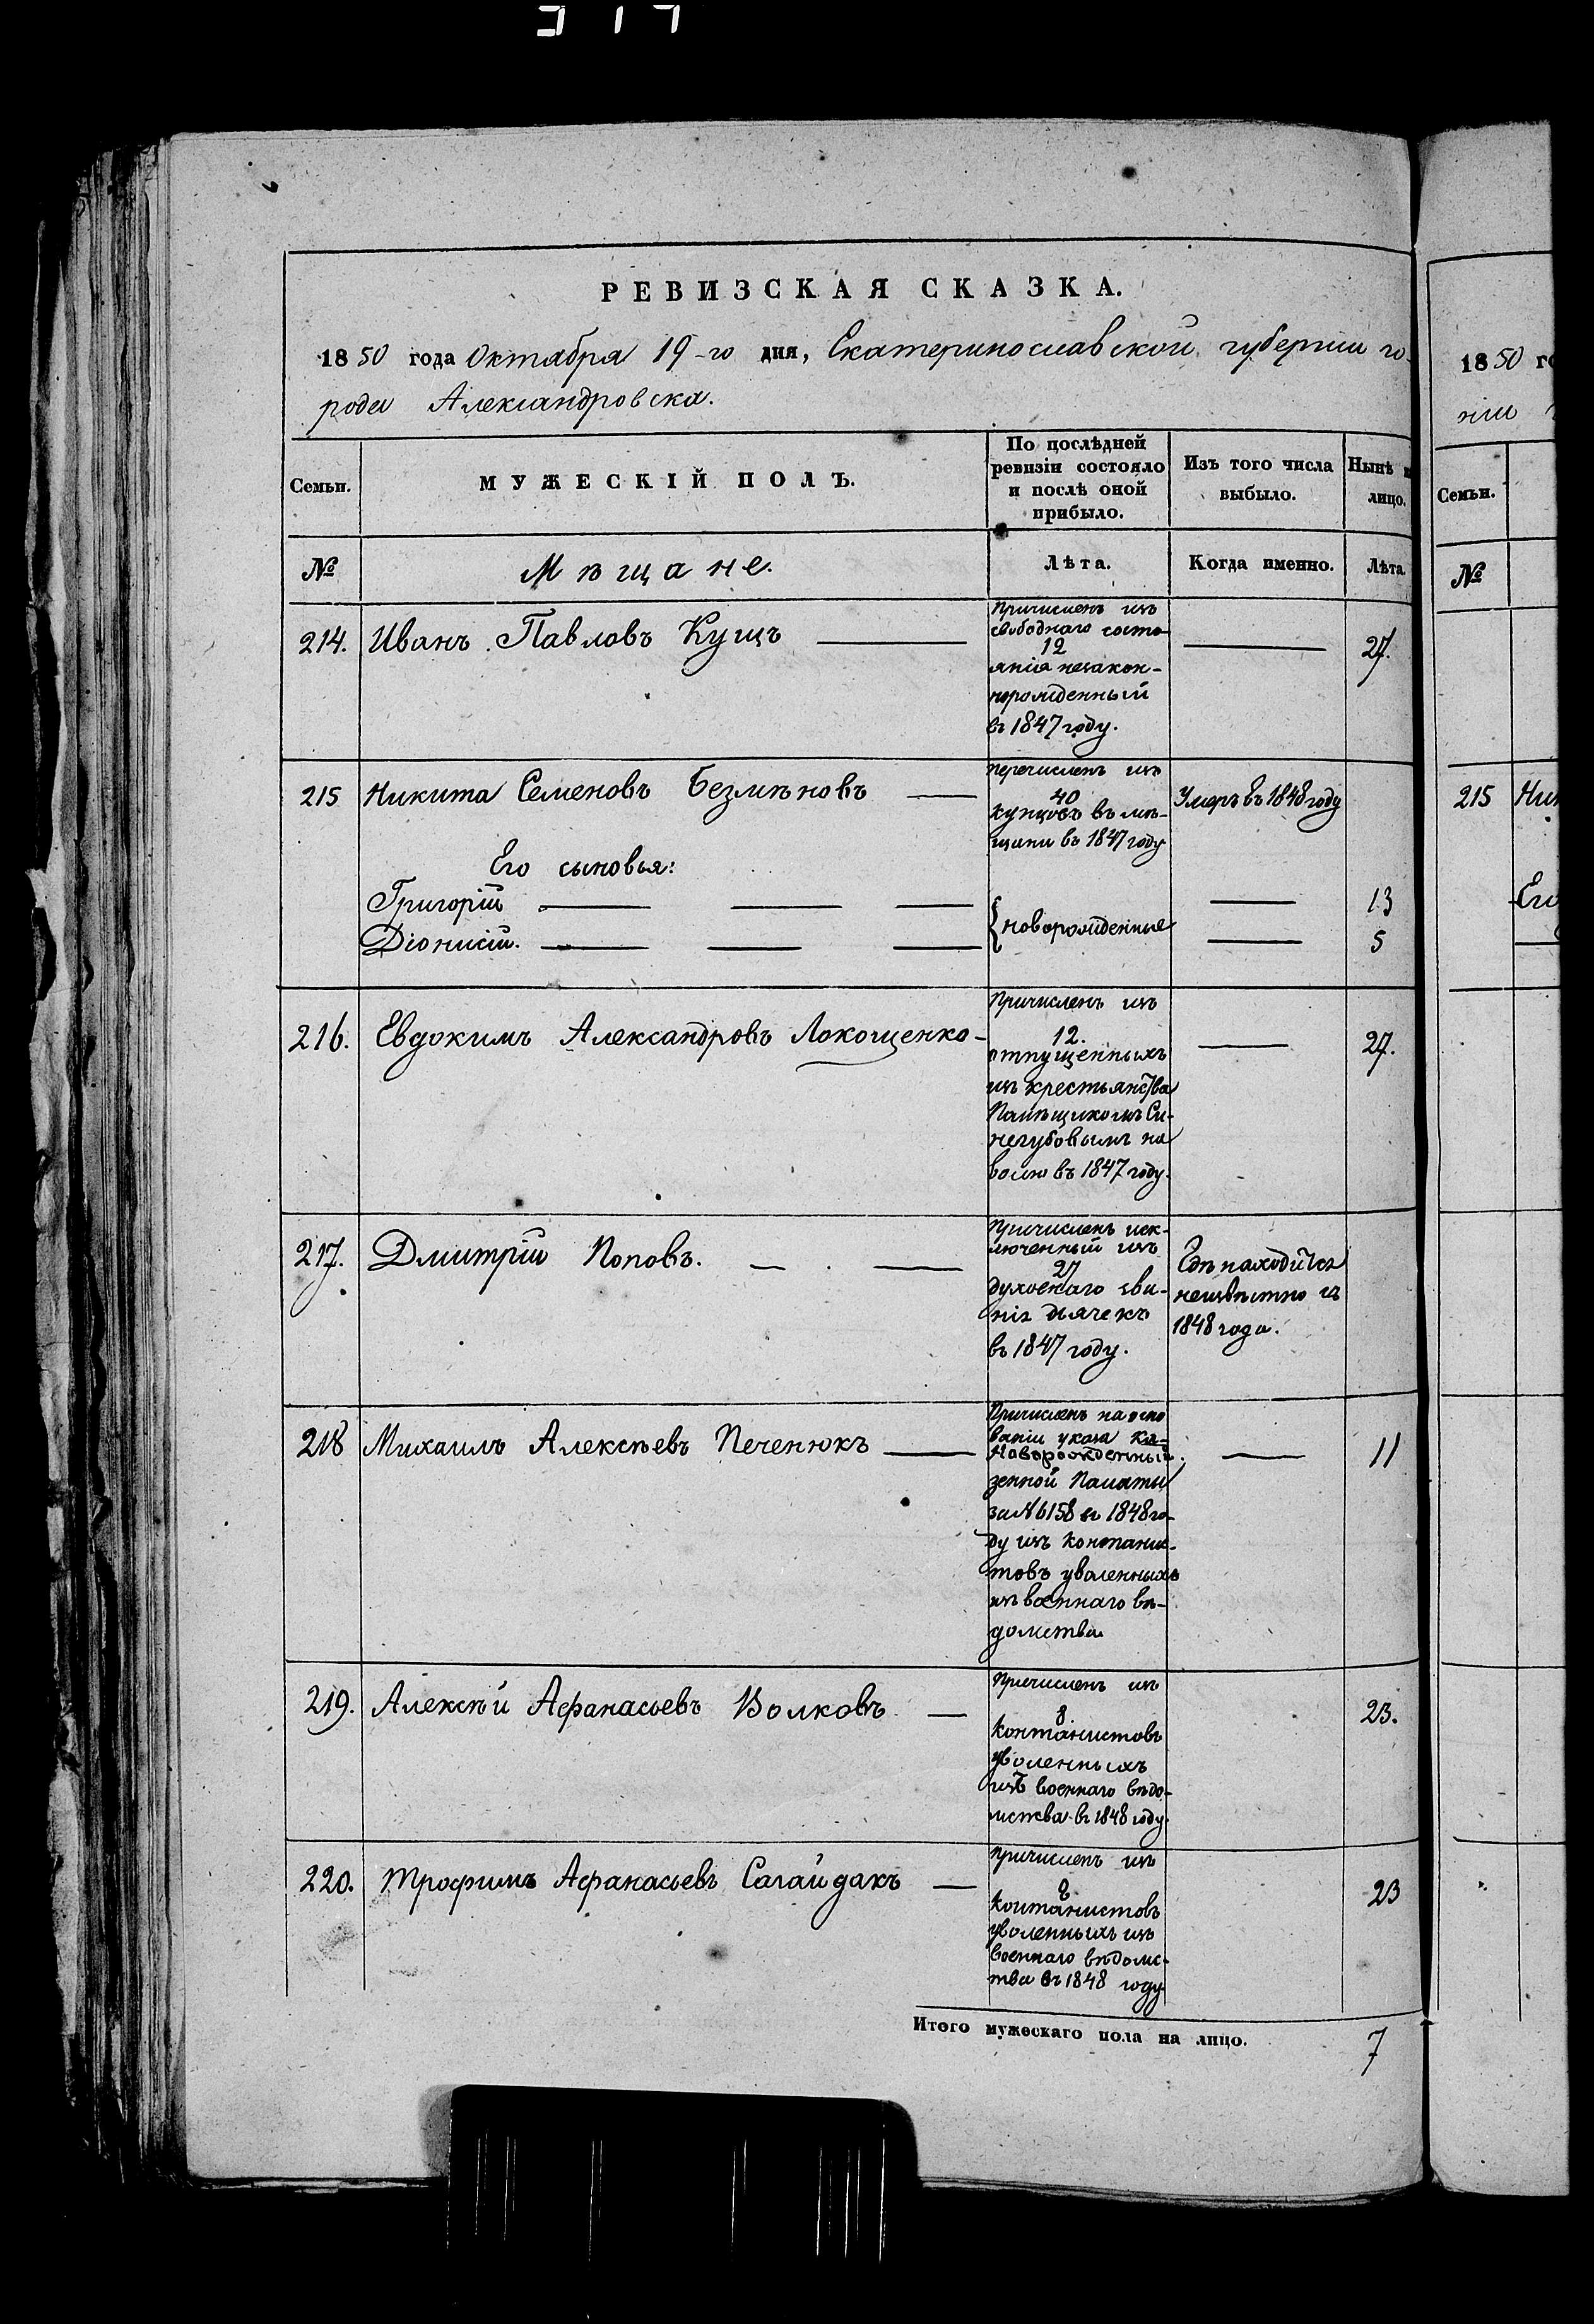 317
РЕВИЗСКАЯ СКАЗКА.
1850 года Октября 19-го дня, Екатеринославской губернии го-
рода Александровска.
Семьи.
МУЖЕСКІЙ ПОЛЪ.
По послѣдней
ревизіи состояло
и послѣ оной
прибыло.
Изъ того числа
выбыло.
Нынѣ н
лицо.
№
Мѣщане.
Лѣта.
Когда именно.
Лѣта.
214. Иванъ Павловъ Кущъ
Причисленъ изъ
свободнаго состо-
12
янія незакон-
норожденный
въ 1847 году.
27.
215 Никита Семеновъ Безмѣновъ
Перечисленъ изъ
40
купцовъ въ мѣ-
щани въ 1847 году
Умеръ въ 1848 году
Его сыновья:
Григорій
13
Діонисій.
{новорожденные
5
216. Евдокимъ Александровъ Локощенко-
Причисленъ изъ
12.
отпущенныхъ
изъ крестьянства
Памѣщикомъ Си-
негубовымъ на
волю въ 1847 году.
27.
217. Дмитрій Поповъ.
Причисленъ иск-
люченный изъ
27
духовнаго зва-
нія дьячекъ
въ 1847 году.
Гдѣ находится
неизвѣстно съ
1848 года.
218 Михаилъ Алексѣевъ Печенюкъ
Причисленъ на осно
ваніи указа Ка-
Новорожденный.
зенной Палаты
за № 6158 въ 1848 го-
ду изъ контанис-
товъ уволенныхъ
изъ военнаго вѣ-
домства
11
219. Алексѣй Афанасьевъ Волковъ
Причисленъ изъ
8.
контанистовъ
уволенныхъ
изъ военнаго вѣдо-
мства въ 1848 году.
23.
220. Трофимъ Афанасьевъ Сагайдакъ
Причисленъ изъ
8
контанистовъ
уволенныхъ изъ
военнаго вѣдомс-
тва въ 1848 году
23
Итого мужескаго пола на лицо. 7
1850 го
ніи
Семьи.
№
215 Ник
Его